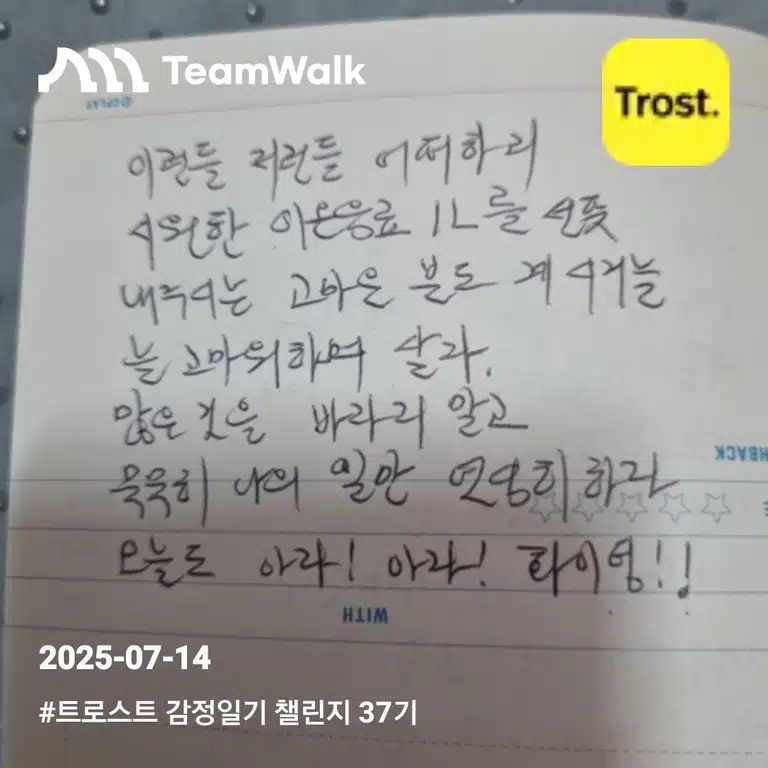 TeamWalk
Trost.
PLAY
이런들 저런들 어떠하리
시원한 이온음료 1L를 선뜻
내주시는 고마운 분도 계시거늘
늘 고마워하며 살라.
많은 것을 바라리 말고
묵묵히 나의 일만 열심히 하라
오늘도 아라! 아라! 화이팅!!
HBACK
WITH
2025-07-14
#트로스트 감정일기 챌린지 37기